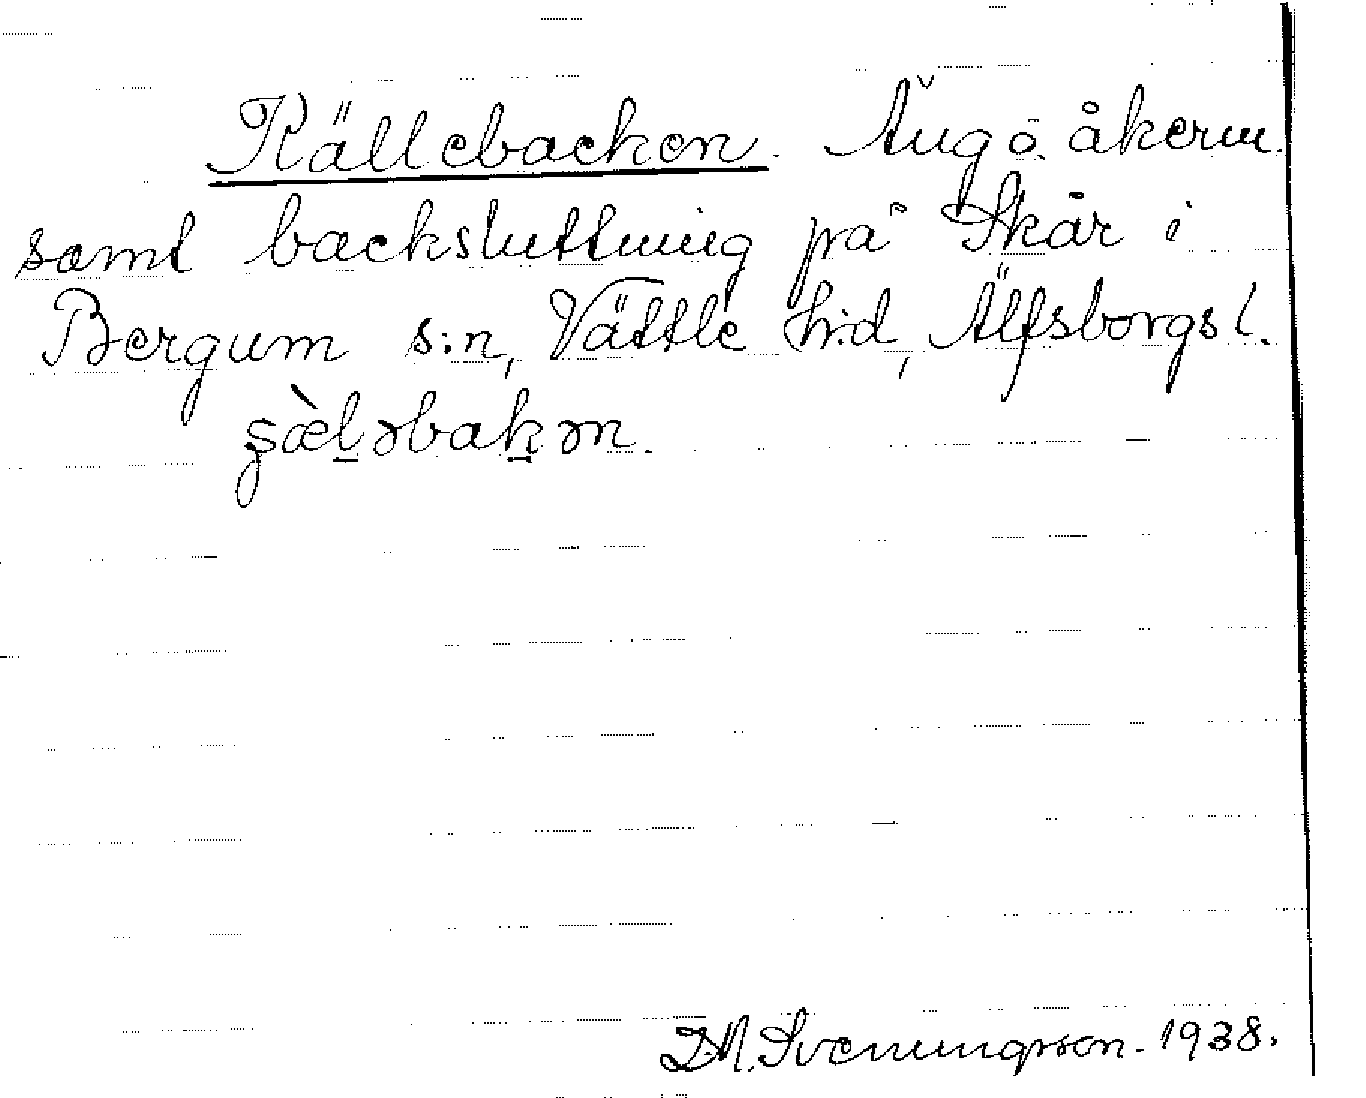 Källebacken. Äng o. åkerm.
samt backsluttning på Skår i
Bergum s:n, Vättle h:d, Älfsborgs l.
s̨æ̀l̠əbak̠ən.
Svenungsson. 1938.